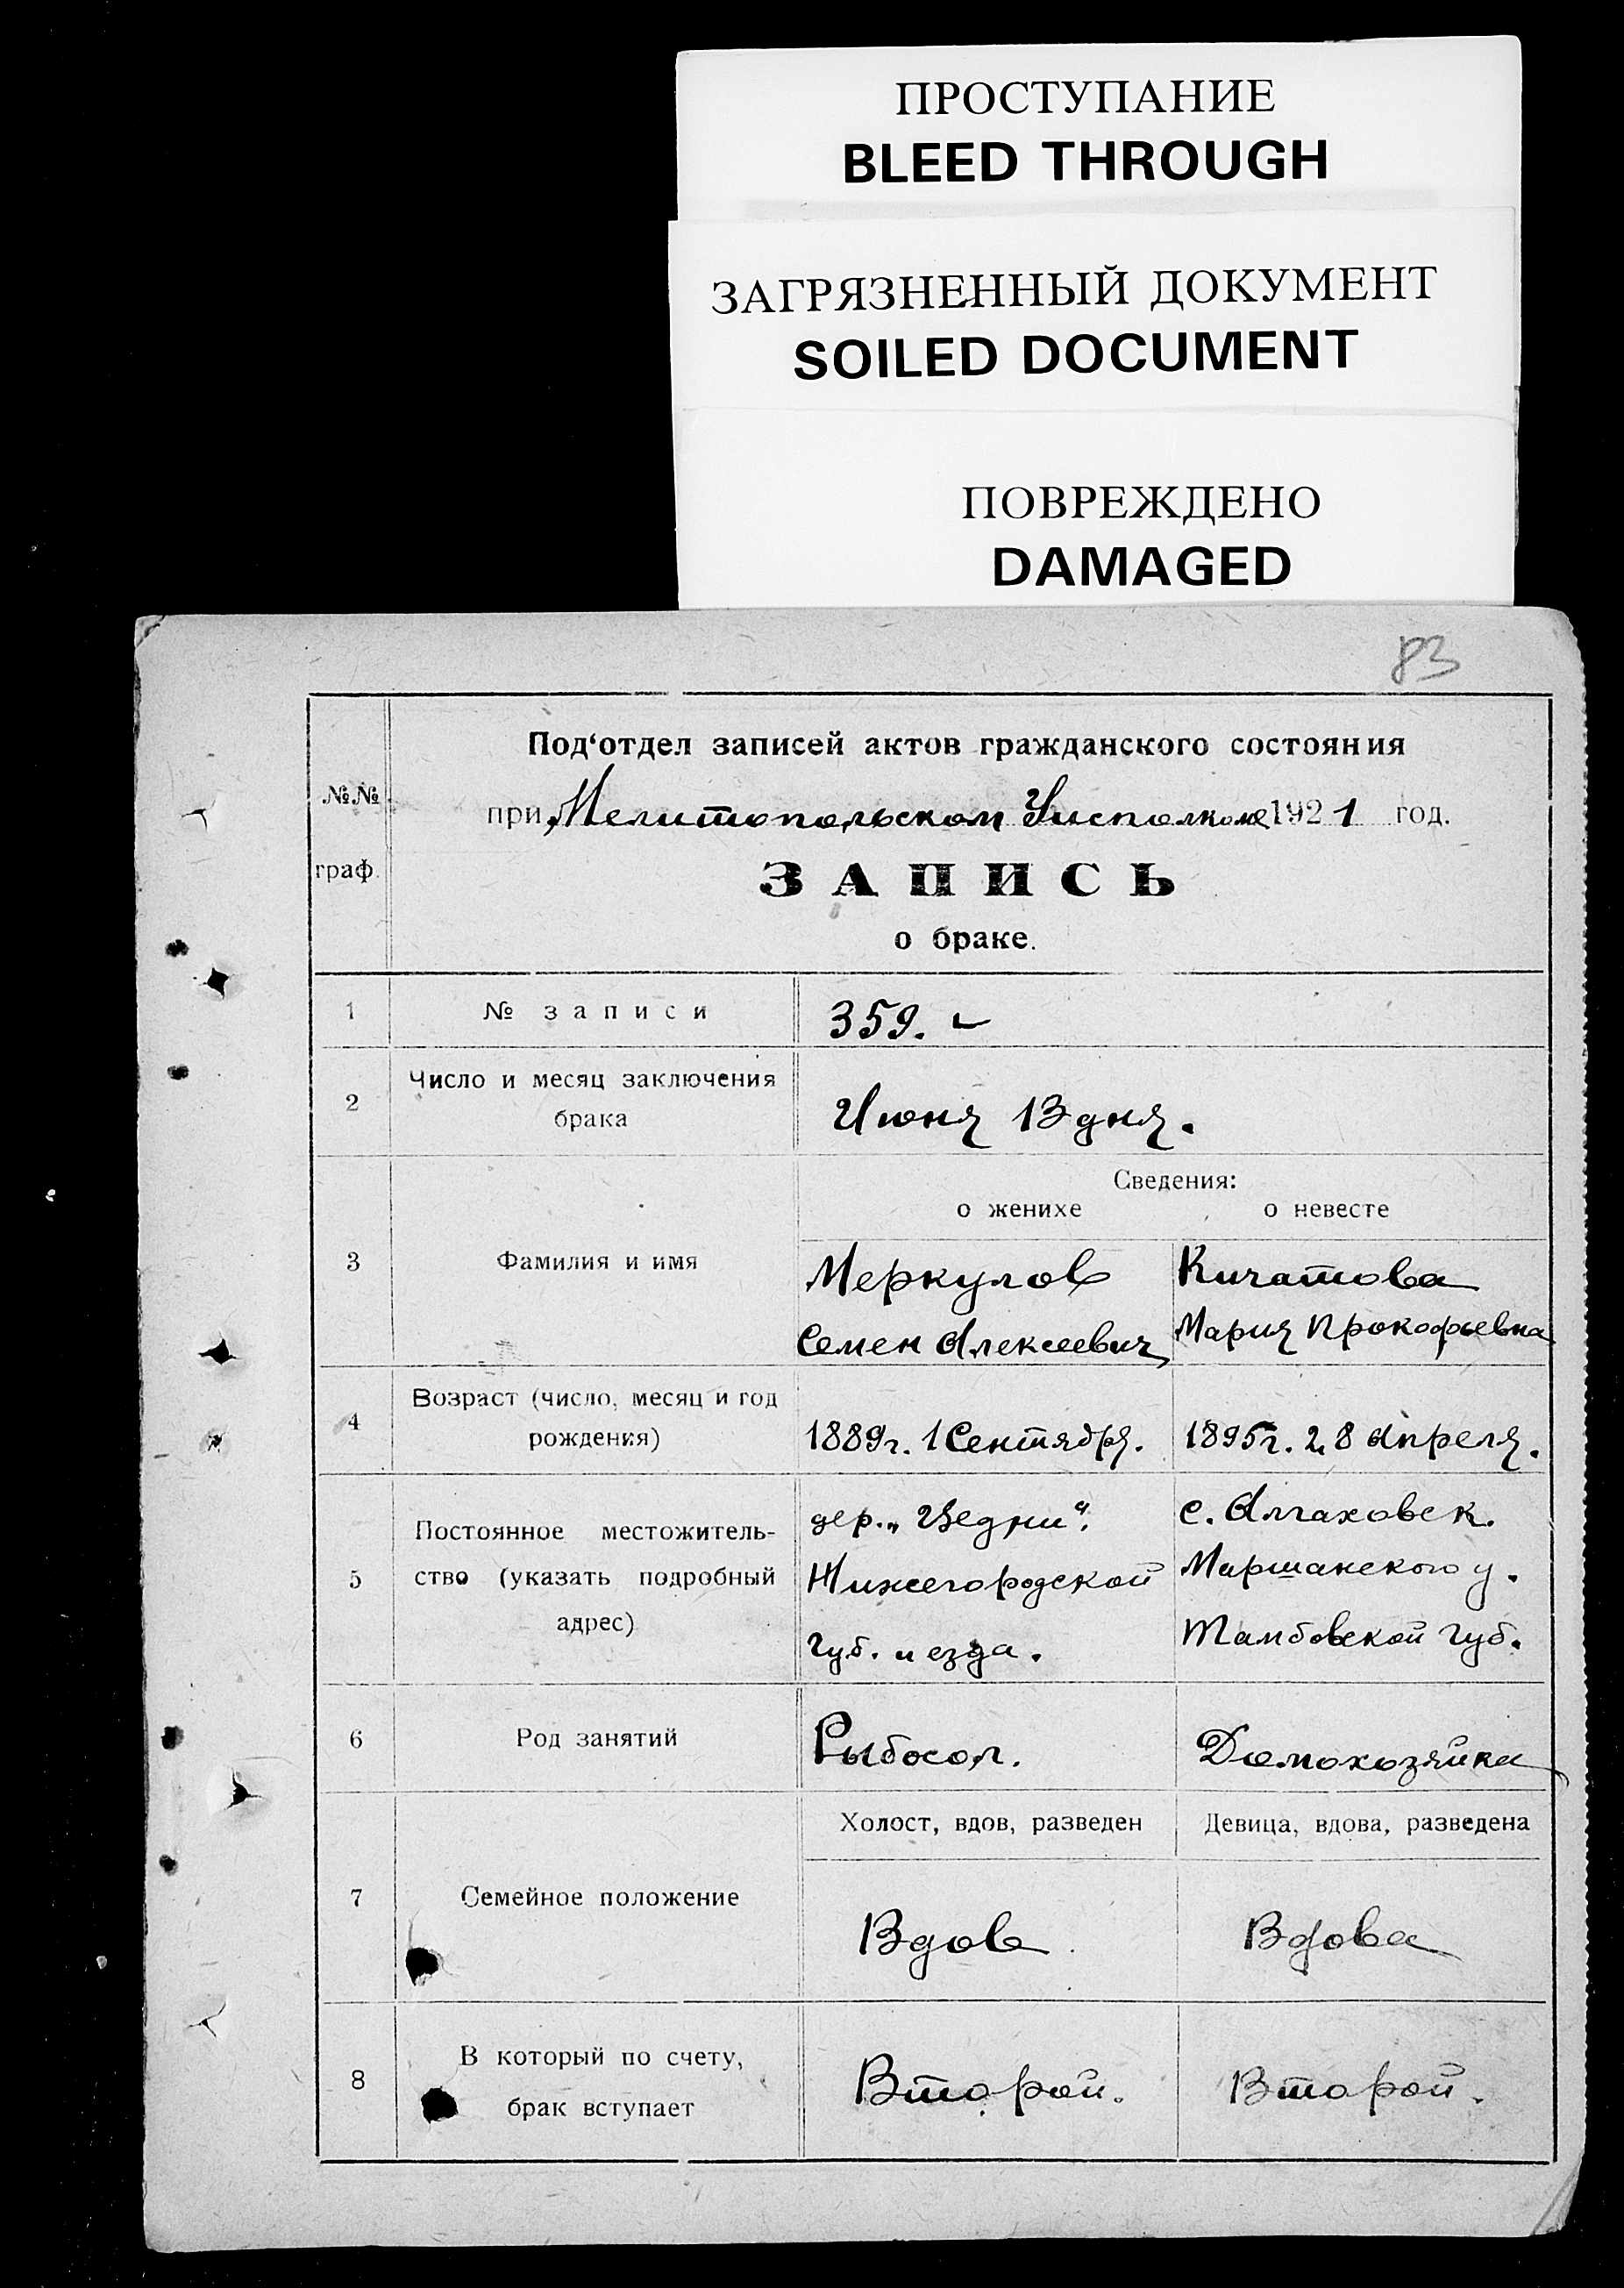 ПРОСТУПАНИЕ
BLEED THROUGH
ЗАГРЯЗНЕННЫЙ ДОКУМЕНТ
SOILED DOCUMENT
ПОВРЕЖДЕНО
DAMAGED
83
№№ граф.
Под‘отдел записей актов гражданского состояния
при Мелитопольском Уисполкоме 1921 год.
ЗАПИСЬ
о браке.
1 № записи 359.
2 Число и месяц заключения
брака
Июня 13 дня.
Сведения:
о женихе о невесте
3 Фамилия и имя
Меркулов Кичатова
Семен Алексеевич Мария Прокофьевна
4 Возраст (число, месяц и год
рождения)
1889г. 1 Сентября. 1895г. 28 Апреля.
5 Постоянное местожитель-
ство (указать подробный
адрес)
дер.
Нижегородской
губ. и езда.
с.
Маршанского у.
Тамбовской губ.
6 Род занятий
Рыбосол. Домохозяйка
Холост, вдов, разведен Девица, вдова, разведена
7 Семейное положение
Вдов Вдова
8 В который по счету,
брак вступает
Второй. Второй.